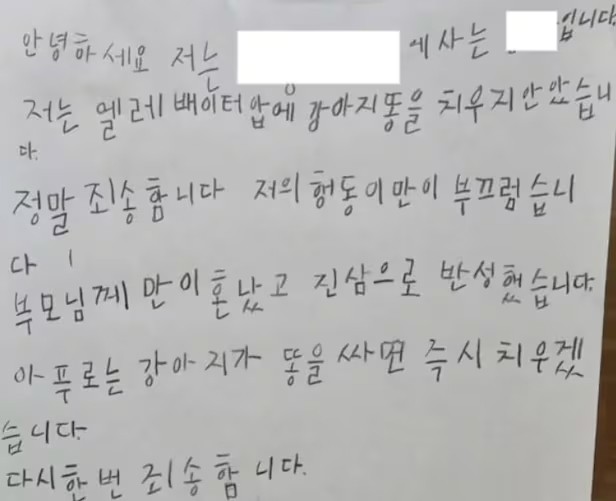 안녕하세요 저는 에 사는 입니다.
저는 엘레베이터 압에 강아지똥을 치우지안았습니
다.
정말 죄송함니다 저의 행동이만이 부끄럼습니
다
부모님께 만이 혼났고 진삼으로 반성했습니다.
아푸로는 강아지가 똥을 싸면 즉시 치우겠
습니다.
다시한번 죄송함니다.